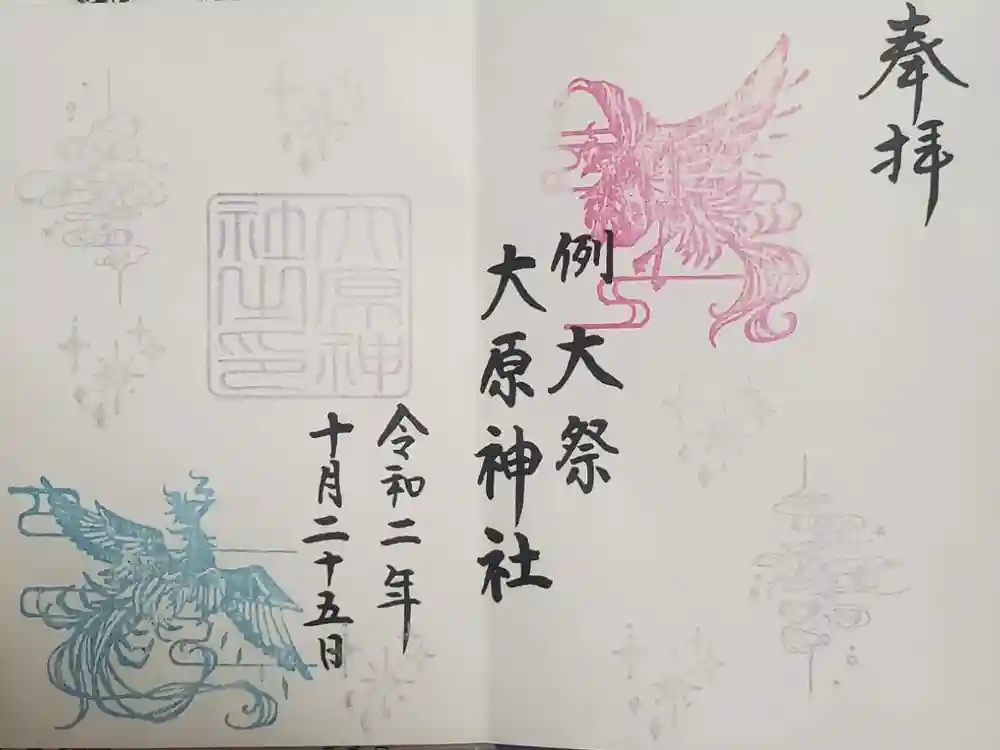 奉拝
例大祭
大原神社
令和二年
十月二十五日
大原神
社之印